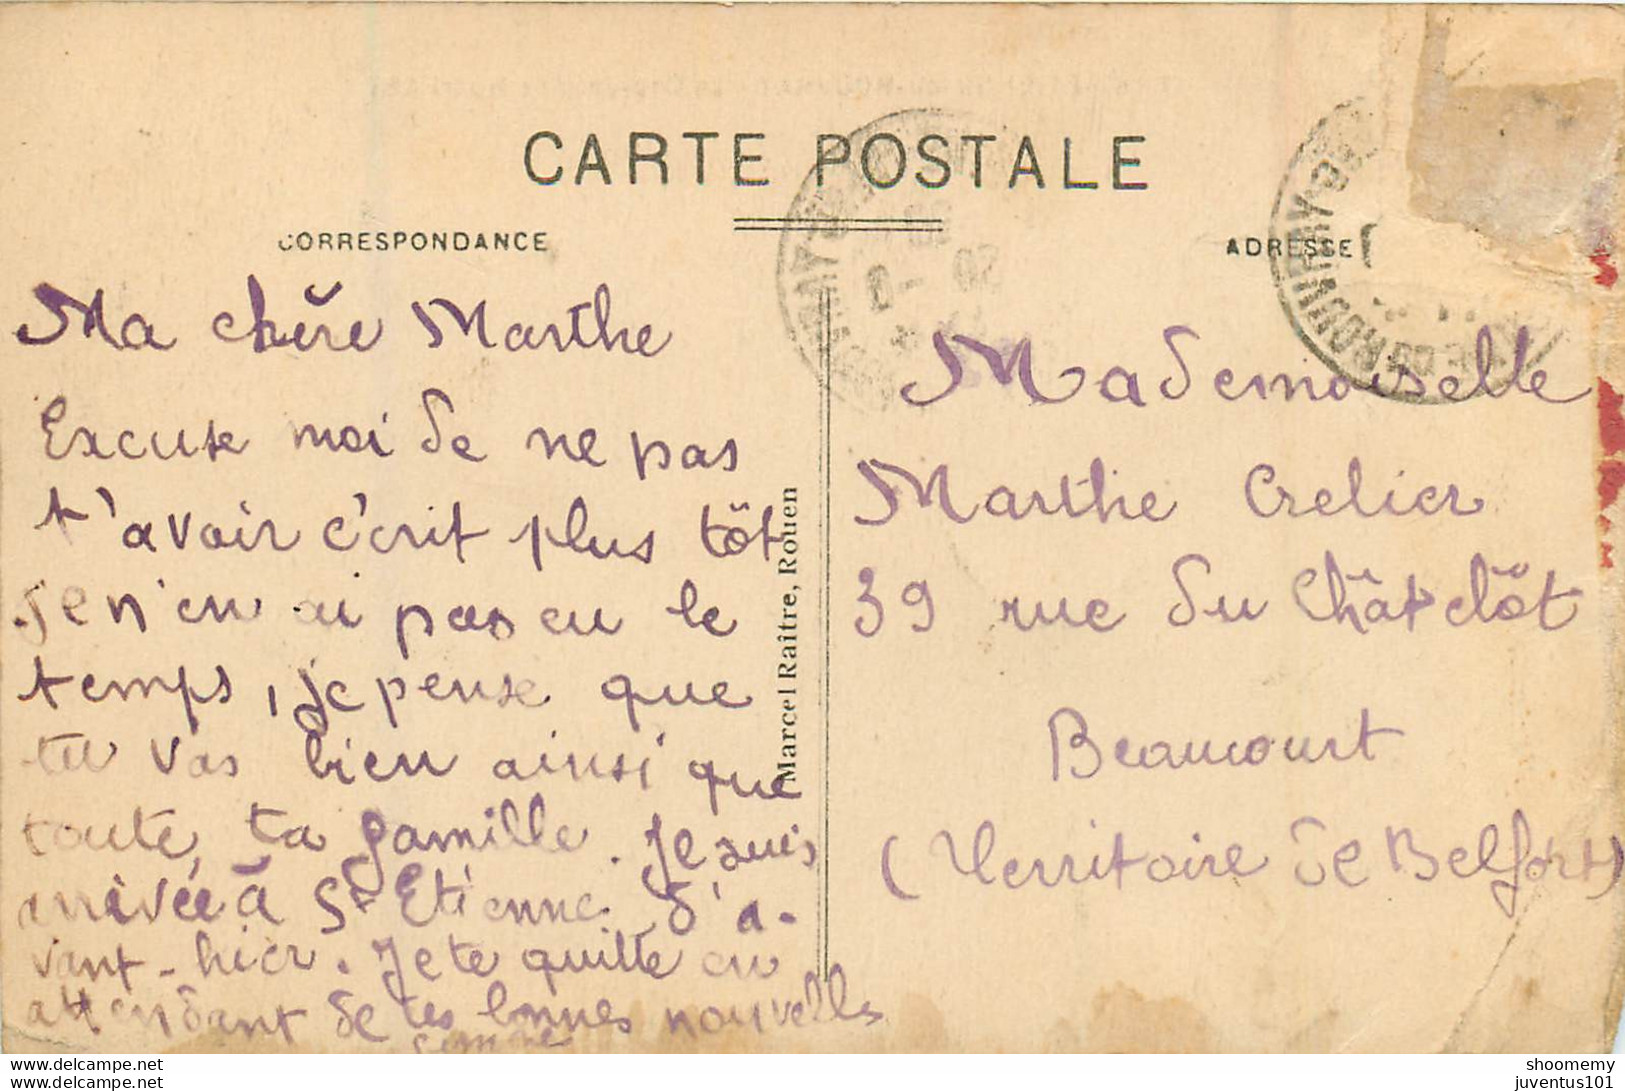 CARTE POSTALE
CORRESPONDANCE
ADRESSE
Ma chère Marthe
Excuse moi de ne pas
t'avoir écrit plus tôt
je n'en ai pas eu le
temps, je pense que
tu vas bien ainsi que
toute ta famille. Je suis
arrivée à St Etienne d'a-
vant-hier. Je te quitte en
attendant de tes bonnes nouvelles
Simone
Marcel Raître, Rouen
Mademoiselle
Marthe Crelier
39 rue du Châtelôt
Beaucourt
(Territoire de Belfort)
ROUVRAY
shoomemy
juventus101